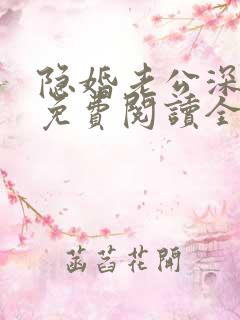 隐婚老公深
免費閱讀全
菡萏花開